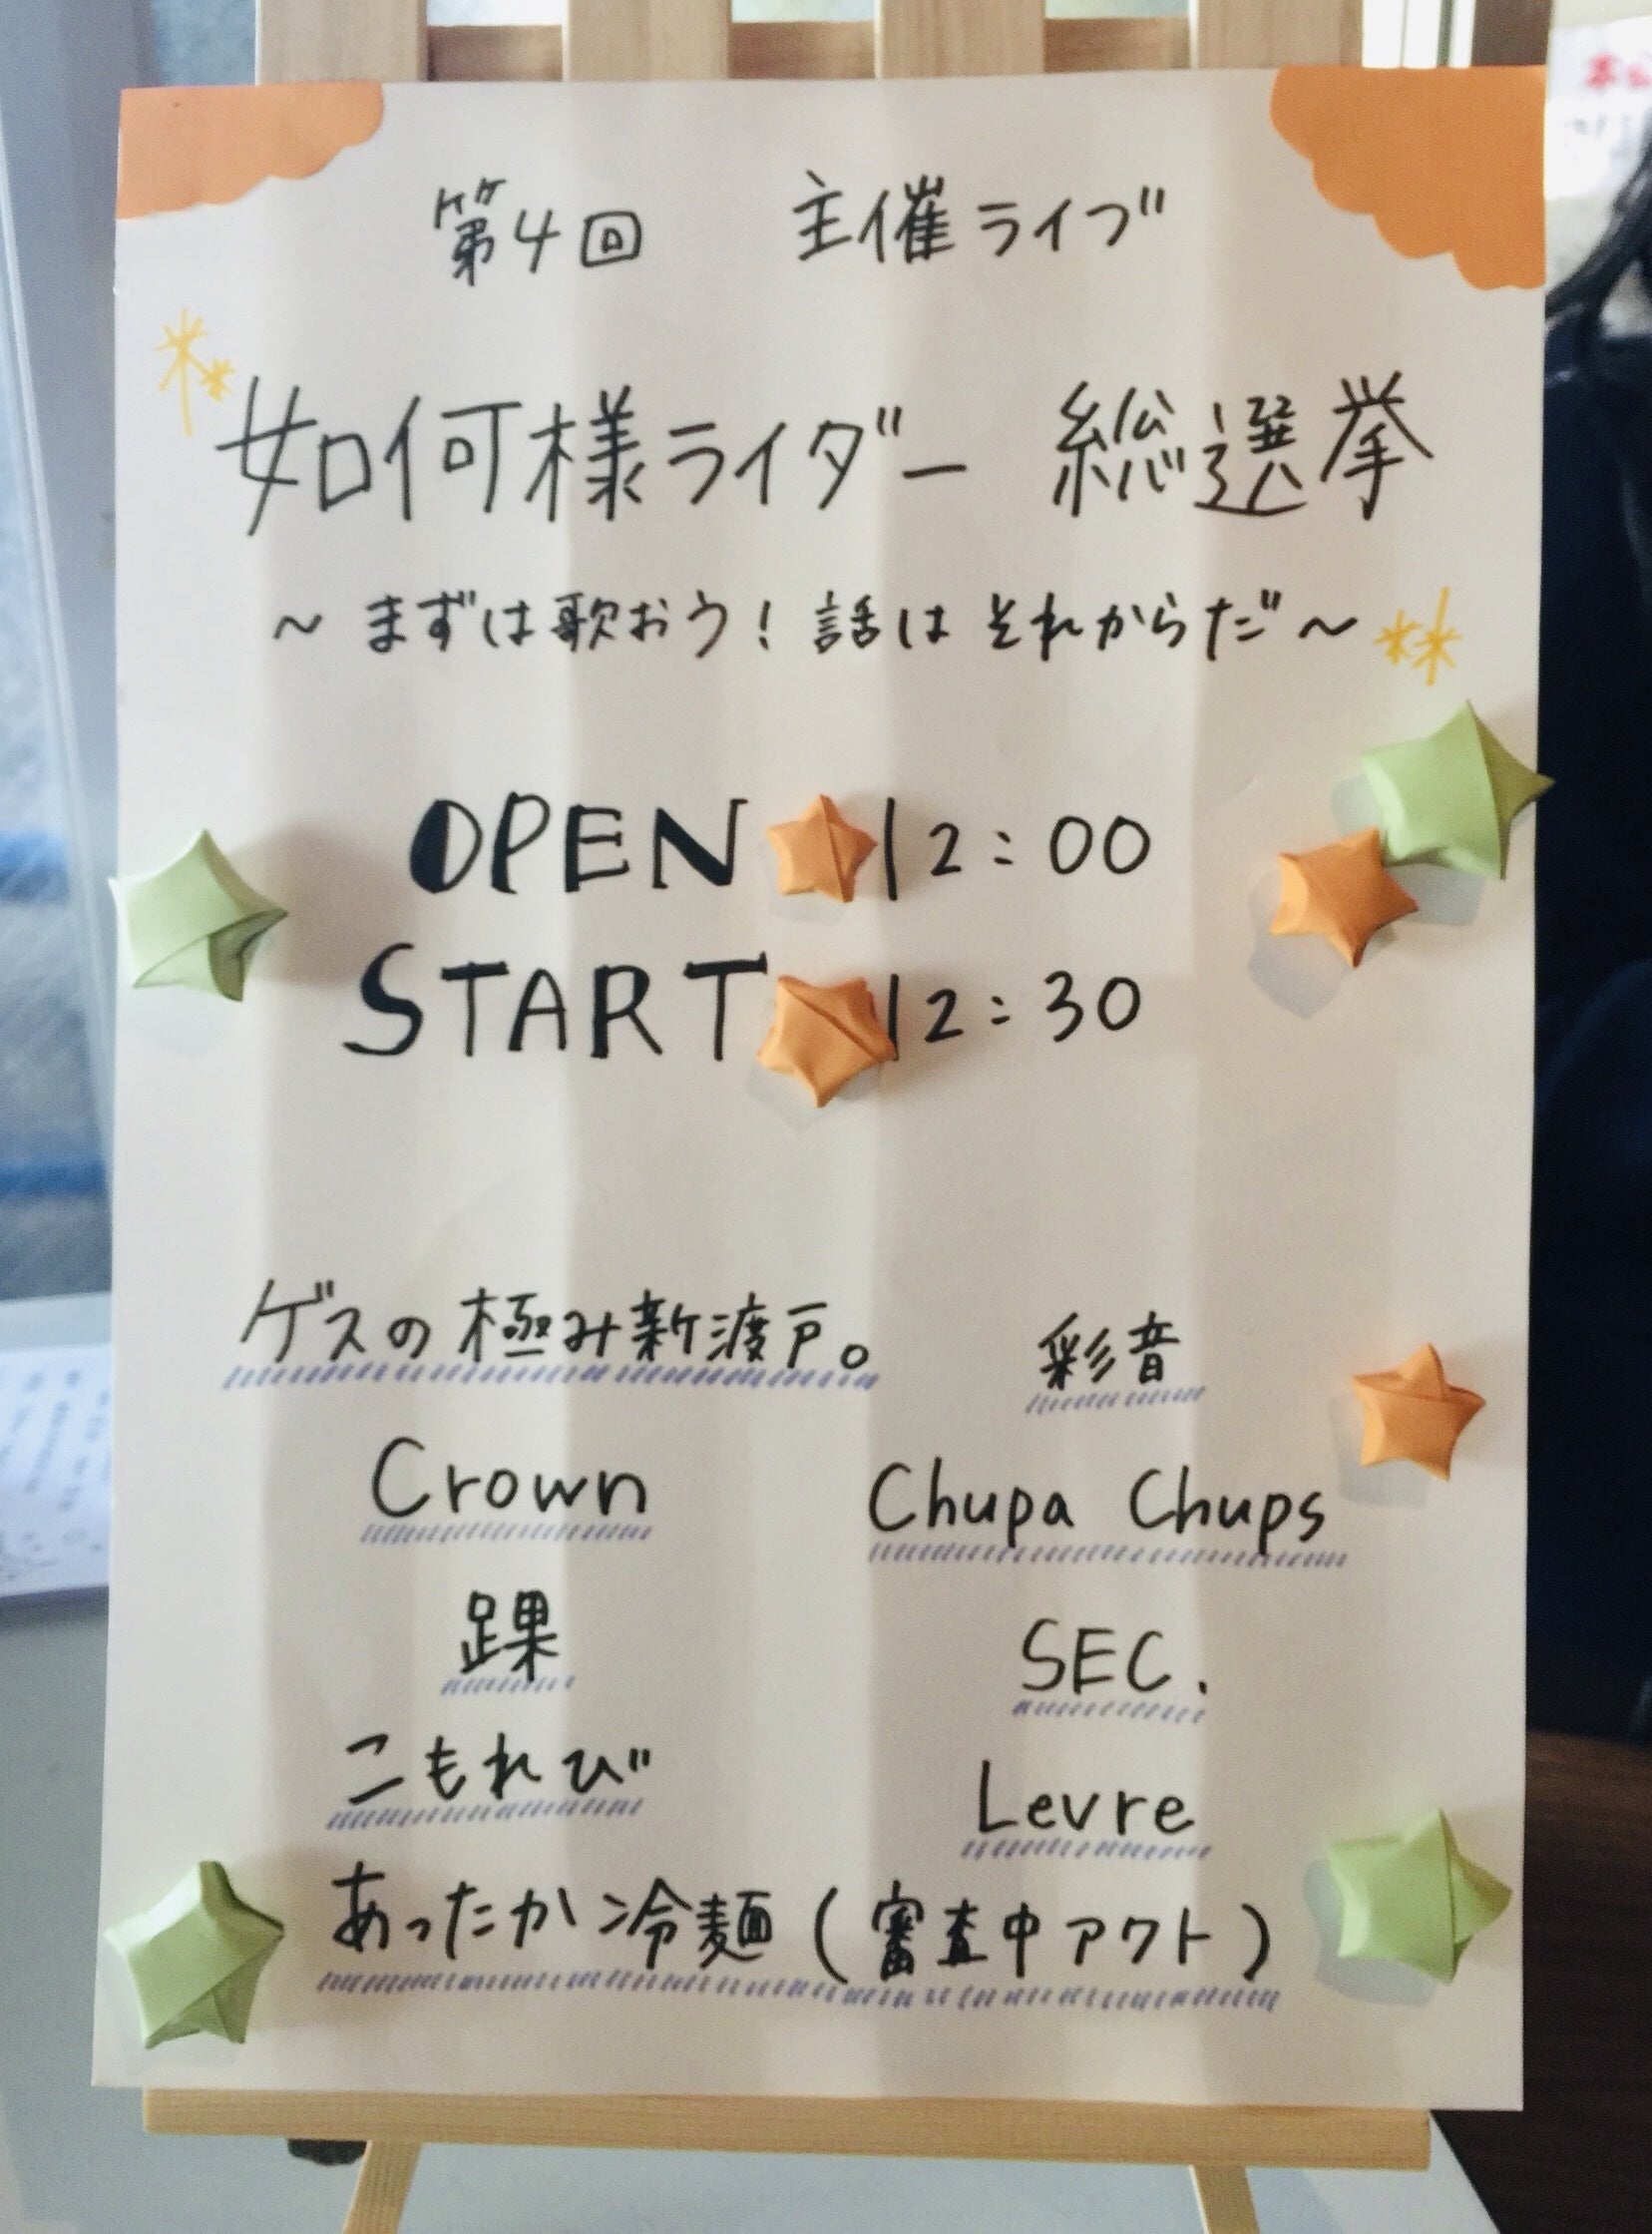 第4回 主催ライブ
如何様ライダー 総選挙
～まずは歌おう！話はそれからだ～
OPEN 12:00
START 12:30
ゲスの極み新渡戸。 彩音
Crown Chupa Chups
踝 SEC.
こもれび Levre
あったか冷麺(審査中アクト)